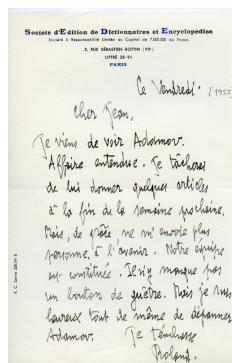 Societe d'Edition de Dictionnaires et Encyclopédies
Société à Responsabilité Limitée au Capital de 7.000.000 de Francs
5, RUE SÉBASTIEN-BOTTIN (VIIe)
LITTRÉ 28-91
PARIS
Ce Vendredi. (1955)
Cher Jean,
Je viens de voir Adamov.
Affaire entendue. Je tâcherai
de lui donner quelques articles
à la fin de la semaine prochaine.
Mais, de grâce ne m'envoie plus
personne, à l'avenir. Notre équipe
est constituée. Il n'y manque pas
un bouton de guêtre. Mais je suis
heureux tout de même de dépanner
Adamov.
Je t'embrasse
Roland.